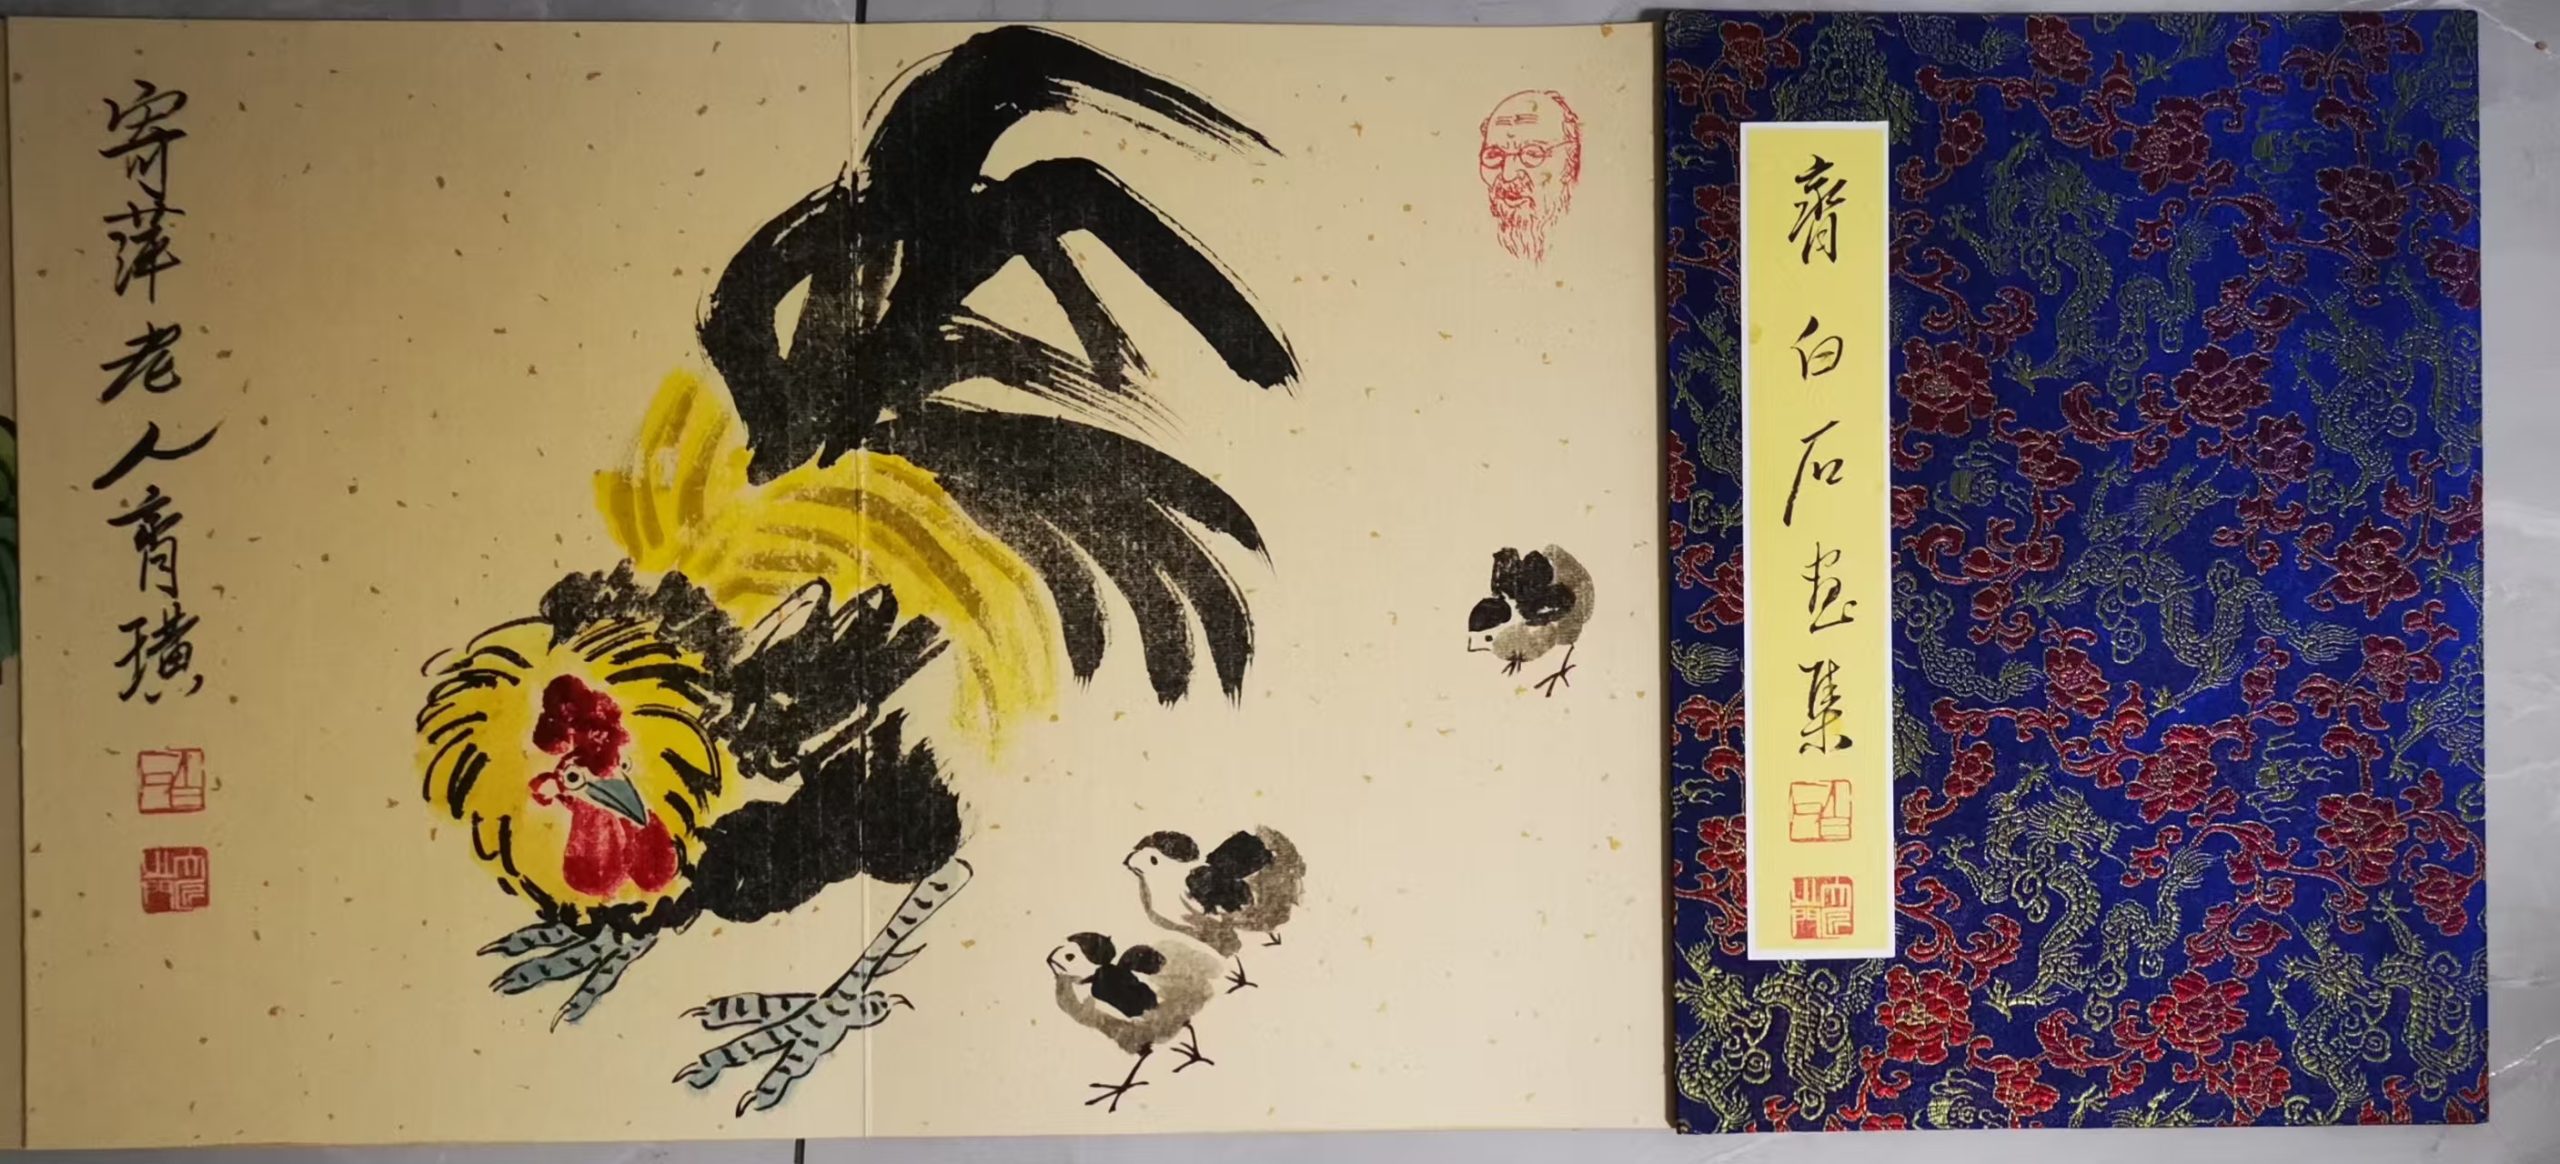 齊白石畫集
寄萍老人齊璜